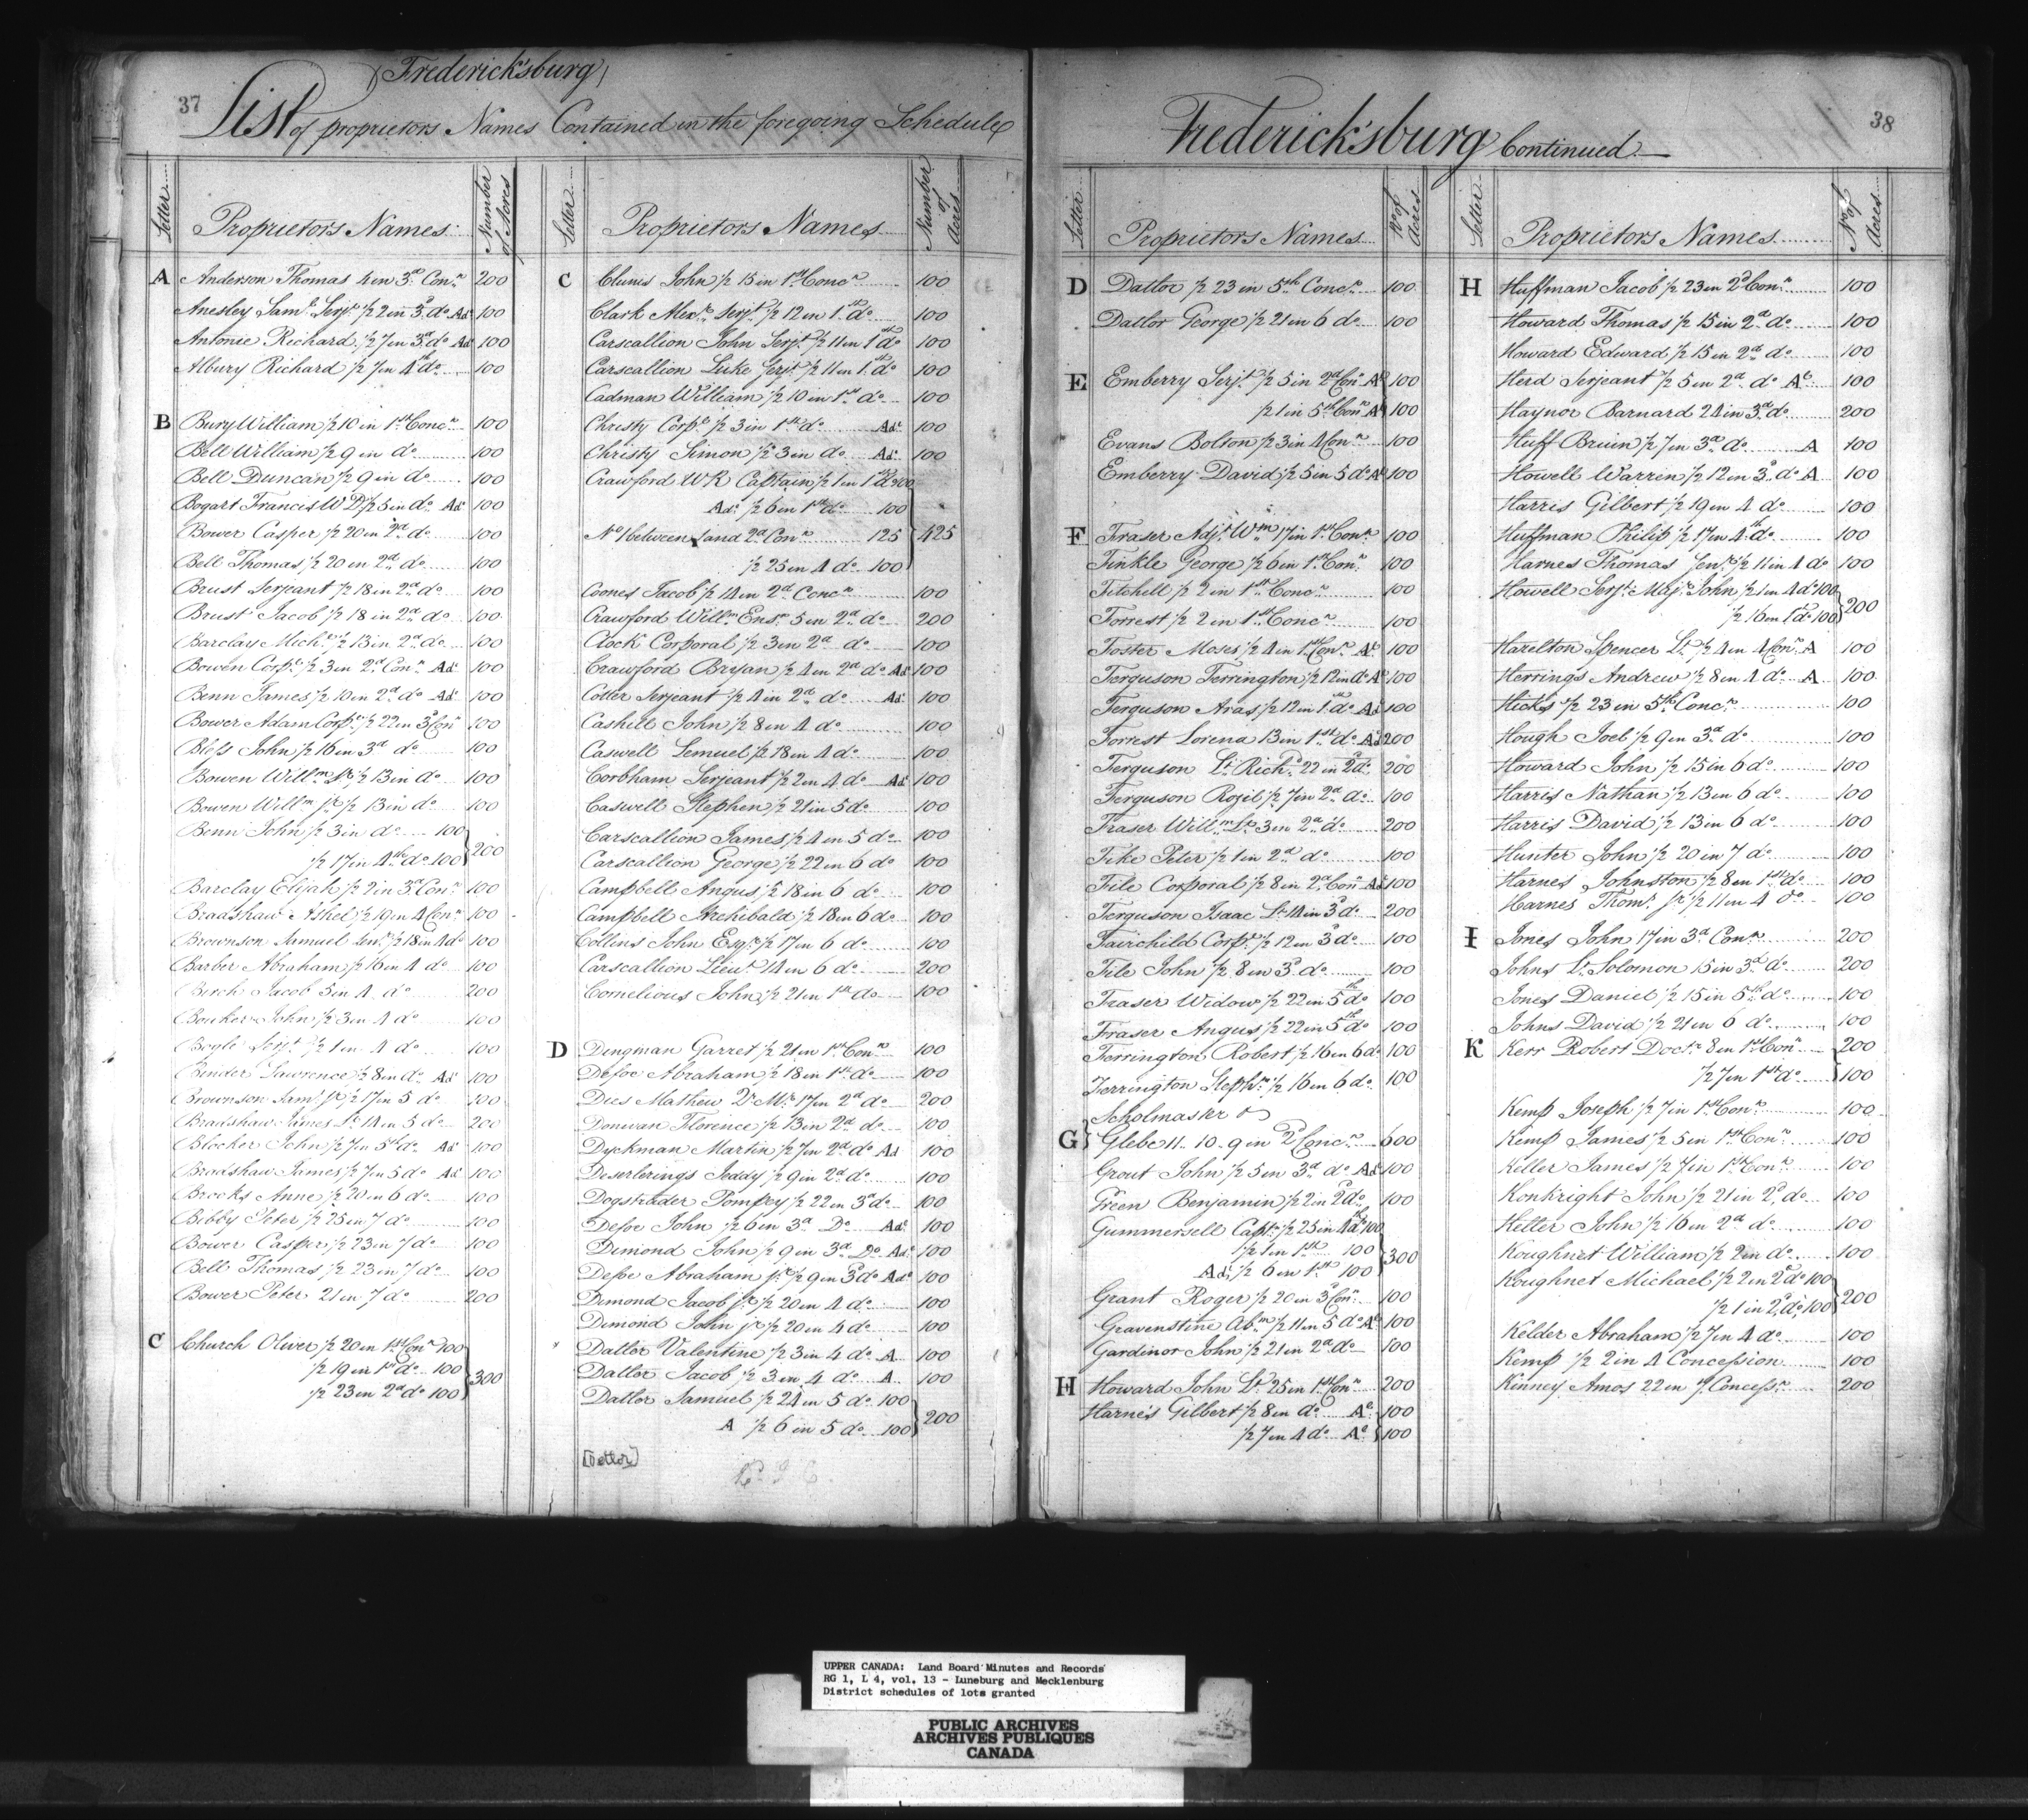 37
(Frederick'sburg)
List of proprietors Names Contained in the foregoing Schedule
Letter
Proprietors Names
Number of Acres
A Anderson Thomas 4 in 3d Conn 200
Anesley Saml Serjt 1/2 2 in 3d do Ad 100
Antonie Richard 1/2 7 in 3d do Ad 100
Albury Richard 1/2 7 in 4th do 100
B Bury William 1/2 10 in 1st Concn 100
Bell William 1/2 9 in do 100
Bell Duncan 1/2 9 in do 100
Bogart Francis W D 1/2 5 in do Ad 100
Bower Casper 1/2 20 in 2d do 100
Bell Thomas 1/2 20 in 2d do 100
Brust Serjeant 1/2 18 in 2d do 100
Brust Jacob 1/2 18 in 2d do 100
Barclay Michl 1/2 13 in 2d do 100
Bowen Corpl 1/2 3 in 2d Conn Ad 100
Benn James 1/2 10 in 2d do Ad 100
Bower Adam Corpl 1/2 22 in 3d Con 100
Bless John 1/2 16 in 3d do 100
Bowen Willm Sr 1/2 13 in do 100
Bowen Willm Jr 1/2 13 in do 100
Benn John 1/2 3 in do 100
1/2 17 in 4th do 100 } 200
Barclay Elijah 1/2 2 in 3d Conn 100
Bradshaw Ashel 1/2 19 in 4 Conn 100
Brownson Samuel Senr 1/2 18 in 4 do 100
Barber Abraham 1/2 16 in 4 do 100
Birch Jacob 5 in 4 do 200
Bouker John 1/2 3 in 4 do 100
Bogle Serjt 1/2 1 in 4 do 100
Binder Lawrence 1/2 8 in do Ad 100
Brownson Saml Jr 1/2 17 in 5 do 100
Bradshaw James Lt 14 in 5 do 200
Blocker John 1/2 7 in 5th do Ad 100
Bradshaw James 1/2 7 in 5 do Ad 100
Brooks Anne 1/2 20 in 6 do 100
Bibby Peter 1/2 25 in 7 do 100
Bower Casper 1/2 23 in 7 do 100
Bell Thomas 1/2 23 in 7 do 100
Bower Peter 21 in 7 do 200
C Church Oliver 1/2 20 in 1st Conn 100
1/2 19 in 1st do 100 } 300
1/2 23 in 2d do 100
Letter
Proprietors Names
Number of Acres
C Clunis John 1/2 15 in 1st Concn 100
Clark Alexr Serjt 1/2 12 in 1st do 100
Carscallion John Serjt 1/2 11 in 1st do 100
Carscallion Luke Serjt 1/2 11 in 1st do 100
Cadman William 1/2 10 in 1st do 100
Christy Corpl 1/2 3 in 1st do Ad 100
Christy Simon 1/2 3 in do Ad 100
Crawford W R Captain 1/2 1 in 1st do 100
Ad 1/2 6 in 1st do 100
No 1 between 1 and 2d Conn 125 } 425
1/2 25 in 4 do 100
Coones Jacob 1/2 14 in 2d Concn 100
Crawford Willm Ensn 5 in 2d do 200
Clock Corporal 1/2 3 in 2d do 100
Crawford Bryan 1/2 4 in 2d do Ad 100
Cotter Serjeant 1/2 4 in 2d do Ad 100
Cashell John 1/2 8 in 4 do 100
Caswell Lemuel 1/2 18 in 4 do 100
Corbham Serjeant 1/2 2 in 4 do Ad 100
Caswell Stephen 1/2 21 in 5 do 100
Carscallion James 1/2 4 in 5 do 100
Carscallion George 1/2 22 in 6 do 100
Campbell Angus 1/2 18 in 6 do 100
Campbell Archibald 1/2 18 in 6 do 100
Collins John Esqr 1/2 17 in 6 do 100
Carscallion Lieut 14 in 6 do 200
Cornelious John 1/2 21 in 1st do 100
D Dingman Garret 1/2 21 in 1st Conn 100
Defoe Abraham 1/2 18 in 1st do 100
Dies Mathew Qr Mr 17 in 2d do 200
Donwan Florence 1/2 13 in 2d do 100
Dyckman Martin 1/2 7 in 2d do Ad 100
Deserlerings Teddy 1/2 9 in 2d do 100
Dogstrader Pompey 1/2 22 in 3d do 100
Defoe John 1/2 6 in 3d Do Ad 100
Dimond John 1/2 9 in 3d Do Ad 100
Defoe Abraham Jr 1/2 9 in 3d do Ad 100
Dimond Jacob Jr 1/2 20 in 4 do 100
Dimond John Jr 1/2 20 in 4 do 100
Datlor Valentine 1/2 3 in 4 do A 100
Datlor Jacob 1/2 3 in 4 do A 100
Datlor Samuel 1/2 24 in 5 do 100
A 1/2 6 in 5 do 100 } 200
[Detlor]
38
Frederick'sburg Continued
Letter
Proprietors Names
No of Acres
D Datlor 1/2 23 in 5th Concn 100
Datlor George 1/2 21 in 6 do 100
E Emberry Serjt 1/2 5 in 2d Con Ad 100
1/2 1 in 5th Con Ad 100
Evans Bolton 1/2 3 in 4 Conn 100
Emberry David 1/2 5 in 5 do Ad 100
F Fraser Adjt Wm 17 in 1st Conn 100
Finkle George 1/2 6 in 1st Conn 100
Fitchell 1/2 2 in 1st Concn 100
Forrest 1/2 2 in 1st Concn 100
Foster Moses 1/2 4 in 1st Conn Ad 100
Ferguson Ferrington 1/2 12 in do Ad 100
Ferguson Aras 1/2 12 in 1st do Ad 100
Forrest Lorena 13 in 1st do Ad 200
Ferguson Lt Richd 22 in 2d do 200
Ferguson Rozil 1/2 7 in 2d do 100
Fraser Willm Lt 3 in 2d do 200
Fike Peter 1/2 1 in 2d do 100
File Corporal 1/2 8 in 2d Con Ad 100
Ferguson Isaac Lt 14 in 3d do 200
Fairchild Corpl 1/2 12 in 3d do 100
File John 1/2 8 in 3d do 100
Fraser Widow 1/2 22 in 5th do 100
Fraser Angus 1/2 22 in 5th do 100
Forrington Robert 1/2 16 in 6 do 100
Ferrington Stephn 1/2 16 in 6 do 100
Scholmaskr
G Glebe 11. 10. 9 in 2d Concn 600
Grout John 1/2 5 in 3d do Ad 100
Green Benjamin 1/2 2 in 2d do 100
Gummersell Capt 1/2 25 in 4th do 100
1/2 1 in 1st 100 } 300
Ad 1/2 6 in 1st 100
Grant Roger 1/2 20 in 3 Conn 100
Gravenstine Abm 1/2 11 in 5 do Ad 100
Gardinor John 1/2 21 in 2d do 100
H Howard John Lt 25 in 1st Conn 200
Harnes Gilbert 1/2 8 in do Ad 100
1/2 7 in 4 do Ad 100
Letter
Proprietors Names
No of Acres
H Huffman Jacob 1/2 23 in 2d Conn 100
Howard Thomas 1/2 15 in 2d do 100
Howard Edward 1/2 15 in 2d do 100
Herd Serjeant 1/2 5 in 2d do Ad 100
Haynor Barnard 24 in 3d do 200
Huff Bruin 1/2 7 in 3d do A 100
Howell Warrin 1/2 12 in 3d do A 100
Harris Gilbert 1/2 19 in 4 do 100
Huffman Philip 1/2 17 in 4th do 100
Harnes Thomas Senr 1/2 11 in 4 do 100
Howell Serjt Majr John 1/2 1 in 4 do 100
1/2 16 in 1st do 100 } 200
Hazelton Spencer Lt 1/2 4 in 4 Conn A 100
Herrings Andrew 1/2 8 in 4 do A 100
Hicks 1/2 23 in 5th Concn 100
Hough Joel 1/2 9 in 3d do 100
Howard John 1/2 15 in 6 do 100
Harris Nathan 1/2 13 in 6 do 100
Harris David 1/2 13 in 6 do 100
Hunter John 1/2 20 in 7 do 100
Harnes Johnston 1/2 8 in 1st do 100
Harnes Thoms Jr 1/2 11 in 4 do 100
I Jones John 17 in 3d Conn 200
Johns Lt Solomon 15 in 3d do 200
Jones Daniel 1/2 15 in 5th do 100
Johns David 1/2 21 in 6 do 100
K Kerr Robert Doctr 8 in 1st Conn 200
1/2 7 in 1st do 100
Kemp Joseph 1/2 7 in 1st Conn 100
Kemp James 1/2 5 in 1st Conn 100
Keller James 1/2 7 in 1st Conn 100
Konkright John 1/2 21 in 2d do 100
Kelter John 1/2 16 in 2d do 100
Koughnet William 1/2 2 in do 100
Koughnet Michael 1/2 2 in 2d do 100
1/2 1 in 2d do 100 } 200
Kelder Abraham 1/2 7 in 4 do 100
Kemp 1/2 2 in 4 Concession 100
Kinney Amos 22 in Concessn 200
UPPER CANADA: Land Board Minutes and Records
RG 1, L 4, vol. 13 - Luneburg and Mecklenburg
District schedules of lots granted
PUBLIC ARCHIVES
ARCHIVES PUBLIQUES
CANADA